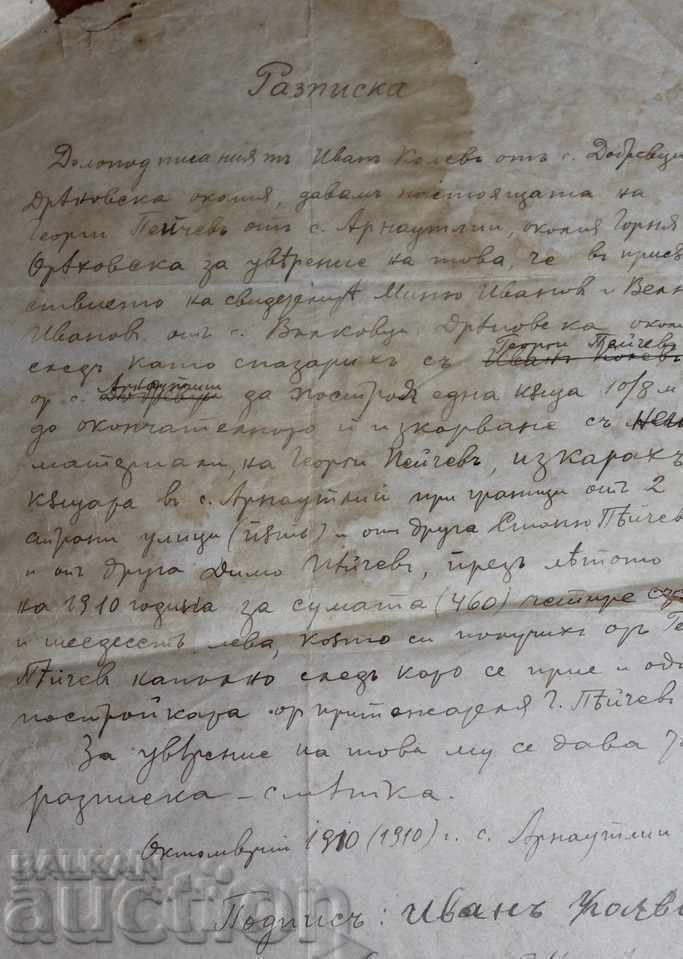 Разписка
Долоподписаниятъ Иванъ Колевъ отъ с. Добревци
Дрѣновска околия, давамъ настоящата на
Георги Пейчевъ отъ с. Арнаутлии, околия Горня
Орѣховска за увѣрение на това, че въ присѫ
ствието на свидетелитѣ Миню Иванов и
Ивановъ отъ с. Вълковци Дрѣновска окол
следъ като спазарихъ съ Георги Пейчевъ
ор с. Арнаутлии да построя една кѫща 10/8 м
до окончателното й изкарване съ
материали, на Георги Пейчевъ, изкарахъ
кѫщара въ с. Арнаутлий при граници отъ 2
страни улици (пѫтъ) и отъ друга Стоню Пѣйчев
и отъ друга Димо Пѣйчевъ, презъ лѣтото
на 1910 година за сумата (460) четире
и шездесетъ лева, която си получихъ отъ Ге
Пѣйчев напълно следъ като се прие и
постройката от притежателя Г. Пѣйчевъ
За увѣрение на това му се дава
разписка – смѣтка.
Октомврий 1910 (1910) г. с. Арнаутлии
Подписъ: Иванъ
BALKAN
auction